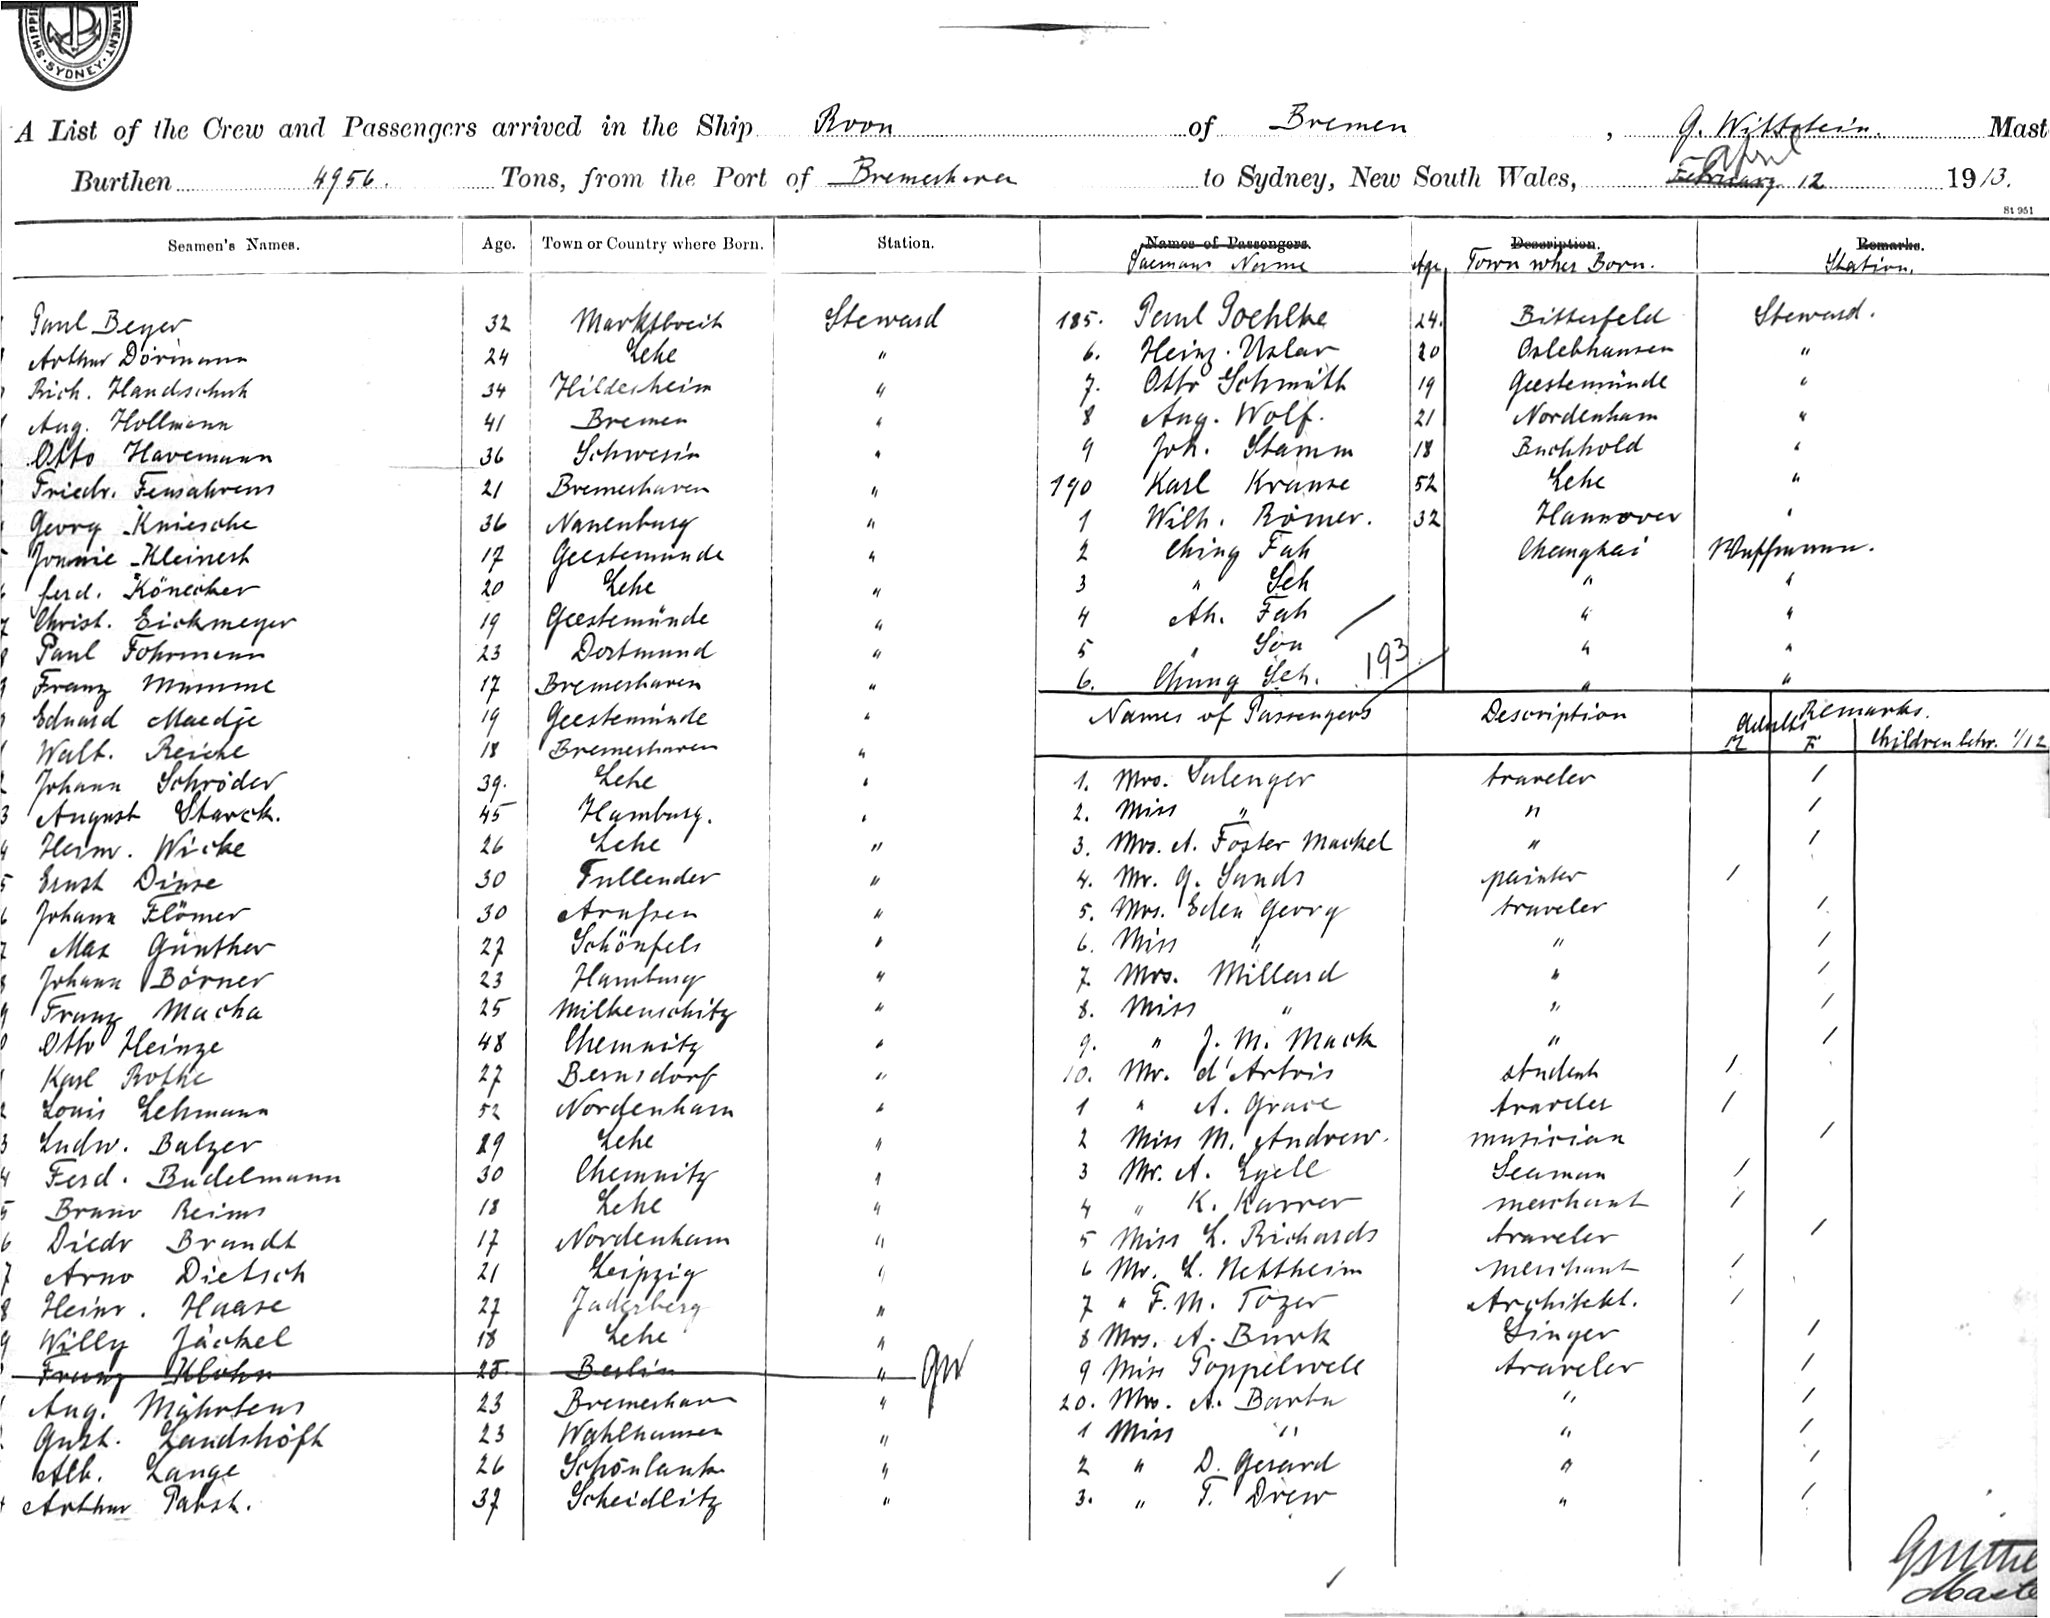 SHIPPI
RTMENT.
SYDNEY.
A List of the Crew and Passengers arrived in the Ship Roon of Bremen, G. Wittstein. Mast
April
Burthen 4956. Tons, from the Port of Bremerhaven to Sydney, New South Wales, February 12 1913.
St 951
Seamen's Names. Age. Town or Country where Born. Station.
Paul Beyer 32 Marktbreit Steward
Arthur Dörmann 24 Lehe "
Rich. Handschuh 34 Hildesheim "
Aug. Hollmann 41 Bremen "
Otto Havemann 36 Schwerin "
Friedr. Fensahrens 21 Bremerhaven "
Georg Kniesche 36 Nauenburg "
Jonnie Kleinert 17 Geestemünde "
ferd. Könecker 20 Lehe "
Christ. Eickmeyer 19 Geestemünde "
Paul Fohrmann 23 Dortmund "
Franz Mumme 17 Bremerhaven "
Eduard Maedje 19 Geestemünde "
Walt. Reiche 18 Bremerhaven "
Johann Schröder 39. Lehe "
August Starck. 45 Hamburg. "
Heinr. Wicke 26 Lehe "
Ernst Dinse 30 Tullender "
Johann Flömer 30 "
Max Günther 27 Schönfels "
Johann Börner 23 Hamburg "
Franz Macha 25 Milkenschitz "
Otto Heinze 48 Chemnitz "
Karl Rothe 27 Bernsdorf "
Louis Lehmann 52 Nordenham "
Ludw. Balzer 29 Lehe "
Ferd. Budelmann 30 Chemnitz "
Bruno Reims 18 Lehe "
Diedr Brandt 17 Nordenham "
Arno Dietsch 21 Leipzig "
Heinr. Haase 27 Jaderberg "
Willy Jäckel 18 Lehe "
Franz Klohn 25 Berlin " GW
Aug. Mährtens 23 Bremerhav "
Gust. Landshöft 23 Wahlhausen "
Alb. Lange 26 Schönlanke "
Arthur Pabst. 37 Scheidlitz "
Names of Passengers. Description. Remarks.
Saemans Name Age Town wher Born. Station.
185. Paul Poehlke 24. Bitterfeld Steward.
6. Heinz. Uslar 20 Oslebhausen "
7. Otto Schmidt 19 Geestemünde "
8 Aug. Wolf. 21 Nordenham "
9 Joh. Stamm 18 Buchhold "
190 Karl Krause 52 Lehe "
1 Wilh. Römer. 32 Hannover "
2 Ching Fah Changhai
3 " Seh " "
4 Ah. Fah " "
5 " Son " "
6. Chung Seh. " "
193
Names of Passengers Description Remarks.
Adults M F Children betw. 1/12
1. Mrs. Salenger traveler /
2. Miss " " /
3. Mrs. A. Foster Mackel " /
4. Mr. G. Sands painter /
5. Mrs. Eden Georg traveler /
6. Miss " " /
7. Mrs. Millard " /
8. Miss " " /
9. " J. M. Mack " /
10. Mr. d'Artois student /
1 " A. Grace traveler /
2 Miss M. Andrew. musician /
3 Mr. A. Lyell Seaman /
4 " K. Karrer merchant /
5 Miss L. Richards traveler /
6 Mr. L. Nettheim merchant /
7 " F. M. Tozer Architekt. /
8 Mrs. A. Burk Singer /
9 Miss Poppelwell traveler /
20. Mrs. A. Barta " /
1 Miss " " /
2 " D. Gerard " /
3. " T. Drew " /